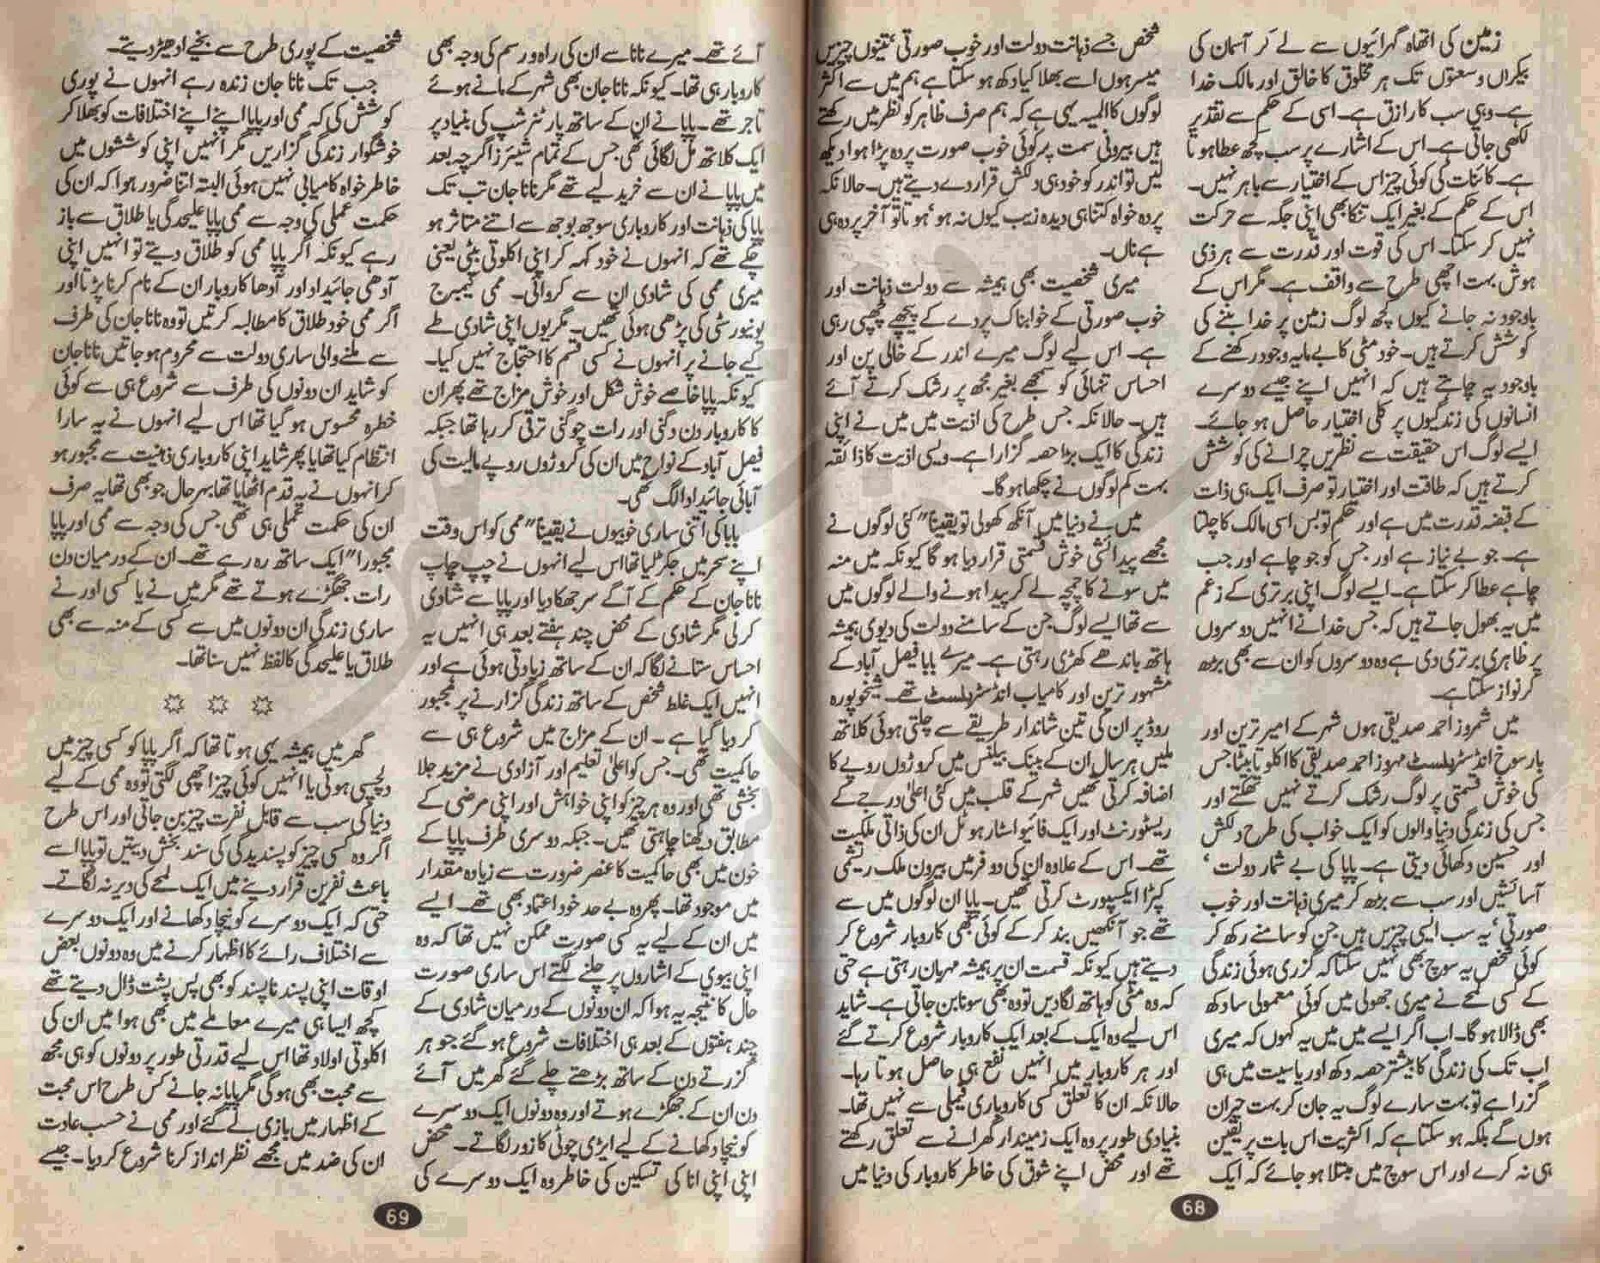 زمین کی اتھاہ گہرائیوں سے لے کر آسمان کی
بیکراں وسعتوں تک ہر مخلوق کا خالق اور مالک خدا
ہے۔ وہی سب کا رازق ہے۔ اسی کے حکم سے تقدیر
لکھی جاتی ہے۔ اس کے اشارے پر سب کچھ عطا ہوتا
ہے۔ کائنات کی کوئی چیز اس کے اختیار سے باہر نہیں۔
اس کے حکم کے بغیر ایک تنکا بھی اپنی جگہ سے حرکت
نہیں کر سکتا۔ اس کی قوت اور قدرت سے ہر ذی
ہوش بہت اچھی طرح سے واقف ہے۔ مگر اس کے
باوجود نہ جانے کیوں کچھ لوگ زمین پر خدا بننے کی
کوشش کرتے ہیں۔ خود مٹی کا بے مایہ وجود رکھنے کے
باوجود یہ چاہتے ہیں کہ انہیں اپنے جیسے دوسرے
انسانوں کی زندگیوں پر کلی اختیار حاصل ہو جائے۔
ایسے لوگ اس حقیقت سے نظریں چرانے کی کوشش
کرتے ہیں کہ طاقت اور اختیار تو صرف ایک ہی ذات
کے قبضہ قدرت میں ہے اور حکم تو بس اسی مالک کا چلتا
ہے۔ جو بے نیاز ہے اور جس کو جو چاہے اور جب
چاہے عطا کر سکتا ہے۔ ایسے لوگ اپنی برتری کے زعم
میں یہ بھول جاتے ہیں کہ جس خدا نے انہیں دوسروں
پر ظاہری برتری دی ہے وہ دوسروں کو ان سے بھی بڑھ
کر نواز سکتا ہے۔
میں شمروز احمد صدیقی ہوں شہر کے امیر ترین اور
بارسوخ انڈسٹریلسٹ مہروز احمد صدیقی کا اکلوتا بیٹا جس
کی خوش قسمتی پر لوگ رشک کرتے نہیں تھکتے اور
جس کی زندگی دنیا والوں کو ایک خواب کی طرح دلکش
اور حسین دکھائی دیتی ہے۔ پاپا کی بے شمار دولت،
آسائشیں اور سب سے بڑھ کر میری ذہانت اور خوب
صورتی، یہ سب ایسی چیزیں ہیں جن کو سامنے رکھ کر
کوئی شخص یہ سوچ بھی نہیں سکتا کہ گزری ہوئی زندگی
کے کسی لمحے نے میری جھولی میں کوئی معمولی سا دکھ
بھی ڈالا ہو گا۔ اب اگر ایسے میں میں یہ کہوں کہ میری
اب تک کی زندگی کا بیشتر حصہ دکھ اور یاسیت میں ہی
گزرا ہے تو بہت سارے لوگ یہ جان کر بہت حیران
ہوں گے بلکہ ہو سکتا ہے کہ اکثریت اس بات پر یقین
ہی نہ کرے اور اس سوچ میں مبتلا ہو جائے کہ ایک
شخص جسے ذہانت دولت اور خوب صورتی، تینوں چیزیں
میسر ہوں اسے بھلا کیا دکھ ہو سکتا ہے ہم میں سے اکثر
لوگوں کا المیہ یہی ہے کہ ہم صرف ظاہر کو نظر میں رکھتے
ہیں بیرونی سمت پر کوئی خوب صورت پردہ پڑا ہوا دیکھ
لیں تو اندر کو خود ہی دلکش قرار دے دیتے ہیں۔ حالانکہ
پردہ خواہ کتنا ہی دیدہ زیب کیوں نہ ہو، ہوتا تو آخر پردہ ہی
ہے ناں۔
میری شخصیت بھی ہمیشہ سے دولت ذہانت اور
خوب صورتی کے خوابناک پردے کے پیچھے چھپی رہی
ہے۔ اس لیے لوگ میرے اندر کے خالی پن اور
احساس تنہائی کو سمجھے بغیر مجھ پر رشک کرتے آئے
ہیں۔ حالانکہ جس طرح کی اذیت میں میں نے اپنی
زندگی کا ایک بڑا حصہ گزارا ہے۔ ویسی اذیت کا ذائقہ
بہت کم لوگوں نے چکھا ہو گا۔
میں نے دنیا میں آنکھ کھولی تو یقینا" کئی لوگوں نے
مجھے پیدائشی خوش قسمتی قرار دیا ہو گا کیونکہ میں منہ
میں سونے کا چمچہ لے کر پیدا ہونے والے لوگوں میں
سے تھا ایسے لوگ جن کے سامنے دولت کی دیوی ہمیشہ
ہاتھ باندھے کھڑی رہتی ہے۔ میرے پاپا فیصل آباد کے
مشہور ترین اور کامیاب انڈسٹریلسٹ تھے۔ شیخوپورہ
روڈ پر ان کی تین شاندار طریقے سے چلتی ہوئی کلاتھ
ملیں ہر سال ان کے بینک بیلنس میں کروڑوں روپے کا
اضافہ کرتی تھیں شہر کے قلب میں کئی اعلیٰ درجے کے
ریسٹورنٹ اور ایک فائیو اسٹار ہوٹل ان کی ذاتی ملکیت
تھے۔ اس کے علاوہ ان کی دو فرمیں بیرون ملک ریشمی
کپڑا ایکسپورٹ کرتی تھیں۔ پاپا ان لوگوں میں سے
تھے جو آنکھیں بند کر کے کوئی بھی کاروبار شروع کر
دیتے ہیں کیونکہ قسمت ان پر ہمیشہ مہربان رہتی ہے حتیٰ
کہ وہ مٹی کو ہاتھ لگا دیں تو وہ بھی سونا بن جاتی ہے۔ شاید
اس لیے وہ ایک کے بعد ایک کاروبار شروع کرتے گئے
اور ہر کاروبار میں انہیں نفع ہی حاصل ہوتا رہا۔
حالانکہ ان کا تعلق کسی کاروباری فیملی سے نہیں تھا۔
بنیادی طور پر وہ ایک زمیندار گھرانے سے تعلق رکھتے
تھے اور محض اپنے شوق کی خاطر کاروبار کی دنیا میں
68
آئے تھے۔ میرے نانا سے ان کی راہ و رسم کی وجہ بھی
کاروبار ہی تھا۔ کیونکہ نانا جان بھی شہر کے مانے ہوئے
تاجر تھے۔ پاپا نے ان کے ساتھ پارٹنرشپ کی بنیاد پر
ایک کلاتھ مل لگائی تھی جس کے تمام شیئرز اگرچہ بعد
میں پاپا نے ان سے خرید لیے تھے مگر نانا جان تب تک
پاپا کی ذہانت اور کاروباری سوجھ بوجھ سے اتنے متاثر ہو
چکے تھے کہ انہوں نے خود کہہ کر اپنی اکلوتی بیٹی یعنی
میری ممی کی شادی ان سے کروائی۔ ممی کیمبرج
یونیورسٹی کی پڑھی ہوئی تھیں۔ مگر یوں اپنی شادی طے
کیے جانے پر انہوں نے کسی قسم کا احتجاج نہیں کیا۔
کیونکہ پاپا خاصے خوش شکل اور خوش مزاج تھے پھر ان
کا کاروبار دن دگنی اور رات چوگنی ترقی کر رہا تھا جبکہ
فیصل آباد کے نواح میں ان کی کروڑوں روپے مالیت کی
آبائی جائیداد الگ تھی۔
پاپا کی اتنی ساری خوبیوں نے یقینا" ممی کو اس وقت
اپنے سحر میں جکڑ لیا تھا اس لیے انہوں نے چپ چاپ
نانا جان کے حکم کے آگے سر جھکا دیا اور پاپا سے شادی
کر لی مگر شادی کے محض چند ہفتے بعد ہی انہیں یہ
احساس ستانے لگا کہ ان کے ساتھ زیادتی ہوئی ہے اور
انہیں ایک غلط شخص کے ساتھ زندگی گزارنے پر مجبور
کر دیا گیا ہے۔ ان کے مزاج میں شروع ہی سے
حاکمیت تھی۔ جس کو اعلیٰ تعلیم اور آزادی نے مزید جلا
بخشی تھی اور وہ ہر چیز کو اپنی خواہش اور اپنی مرضی کے
مطابق دیکھنا چاہتی تھیں۔ جبکہ دوسری طرف پاپا کے
خون میں بھی حاکمیت کا عنصر ضرورت سے زیادہ مقدار
میں موجود تھا۔ پھر وہ بے حد خود اعتماد بھی تھے۔ ایسے
میں ان کے لیے یہ کسی صورت ممکن نہیں تھا کہ وہ
اپنی بیوی کے اشاروں پر چلنے لگتے اس ساری صورت
حال کا نتیجہ یہ ہوا کہ ان دونوں کے درمیان شادی کے
چند ہفتوں کے بعد ہی اختلافات شروع ہو گئے جو ہر
گزرتے دن کے ساتھ بڑھتے چلے گئے گھر میں آئے
دن ان کے جھگڑے ہوتے اور وہ دونوں ایک دوسرے
کو نیچا دکھانے کے لیے ایڑی چوٹی کا زور لگاتے۔ محض
اپنی اپنی انا کی تسکین کی خاطر وہ ایک دوسرے کی
شخصیت کے پوری طرح سے بخیے ادھیڑ دیتے۔
جب تک نانا جان زندہ رہے انہوں نے پوری
کوشش کی کہ ممی اور پاپا اپنے اپنے اختلافات کو بھلا کر
خوشگوار زندگی گزاریں مگر انہیں اپنی کوششوں میں
خاطر خواہ کامیابی نہیں ہوئی البتہ اتنا ضرور ہوا کہ ان کی
حکمت عملی کی وجہ سے ممی پاپا علیحدگی یا طلاق سے باز
رہے کیونکہ اگر پاپا ممی کو طلاق دیتے تو انہیں اپنی
آدھی جائیداد اور آدھا کاروبار ان کے نام کرنا پڑتا اور
اگر ممی خود طلاق کا مطالبہ کرتیں تو وہ نانا جان کی طرف
سے ملنے والی ساری دولت سے محروم ہو جاتیں نانا جان
کو شاید ان دونوں کی طرف سے شروع ہی سے کوئی
خطرہ محسوس ہو گیا تھا اس لیے انہوں نے یہ سارا
انتظام کیا تھا یا پھر شاید اپنی کاروباری ذہنیت سے مجبور ہو
کر انہوں نے یہ قدم اٹھایا تھا بہرحال جو بھی تھا یہ صرف
ان کی حکمت عملی ہی تھی جس کی وجہ سے ممی اور پاپا
مجبورا" ایک ساتھ رہ رہے تھے۔ ان کے درمیان دن
رات جھگڑے ہوتے تھے مگر میں نے یا کسی اور نے
ساری زندگی ان دونوں میں سے کسی کے منہ سے بھی
طلاق یا علیحدگی کا لفظ نہیں سنا تھا۔
گھر میں ہمیشہ یہی ہوتا تھا کہ اگر پاپا کو کسی چیز میں
دلچسپی ہوتی یا انہیں کوئی چیز اچھی لگتی تو وہ ممی کے لیے
دنیا کی سب سے قابل نفرت چیز بن جاتی اور اس طرح
اگر وہ کسی چیز کو پسندیدگی کی سند بخش دیتیں تو پاپا اسے
باعث نفرین قرار دینے میں ایک لمحے کی دیر نہ لگاتے۔
حتیٰ کہ ایک دوسرے کو نیچا دکھانے اور ایک دوسرے
سے اختلاف رائے کا اظہار کرنے میں وہ دونوں بعض
اوقات اپنی پسند ناپسند کو بھی پس پشت ڈال دیتے تھے
کچھ ایسا ہی میرے معاملے میں بھی ہوا میں ان کی
اکلوتی اولاد تھا اس لیے قدرتی طور پر دونوں کو ہی مجھ
سے محبت بھی ہو گی مگر پاپا نہ جانے کس طرح اس محبت
کے اظہار میں بازی لے گئے اور ممی نے حسب عادت
ان کی ضد میں مجھے نظر انداز کرنا شروع کر دیا۔ جیسے
69